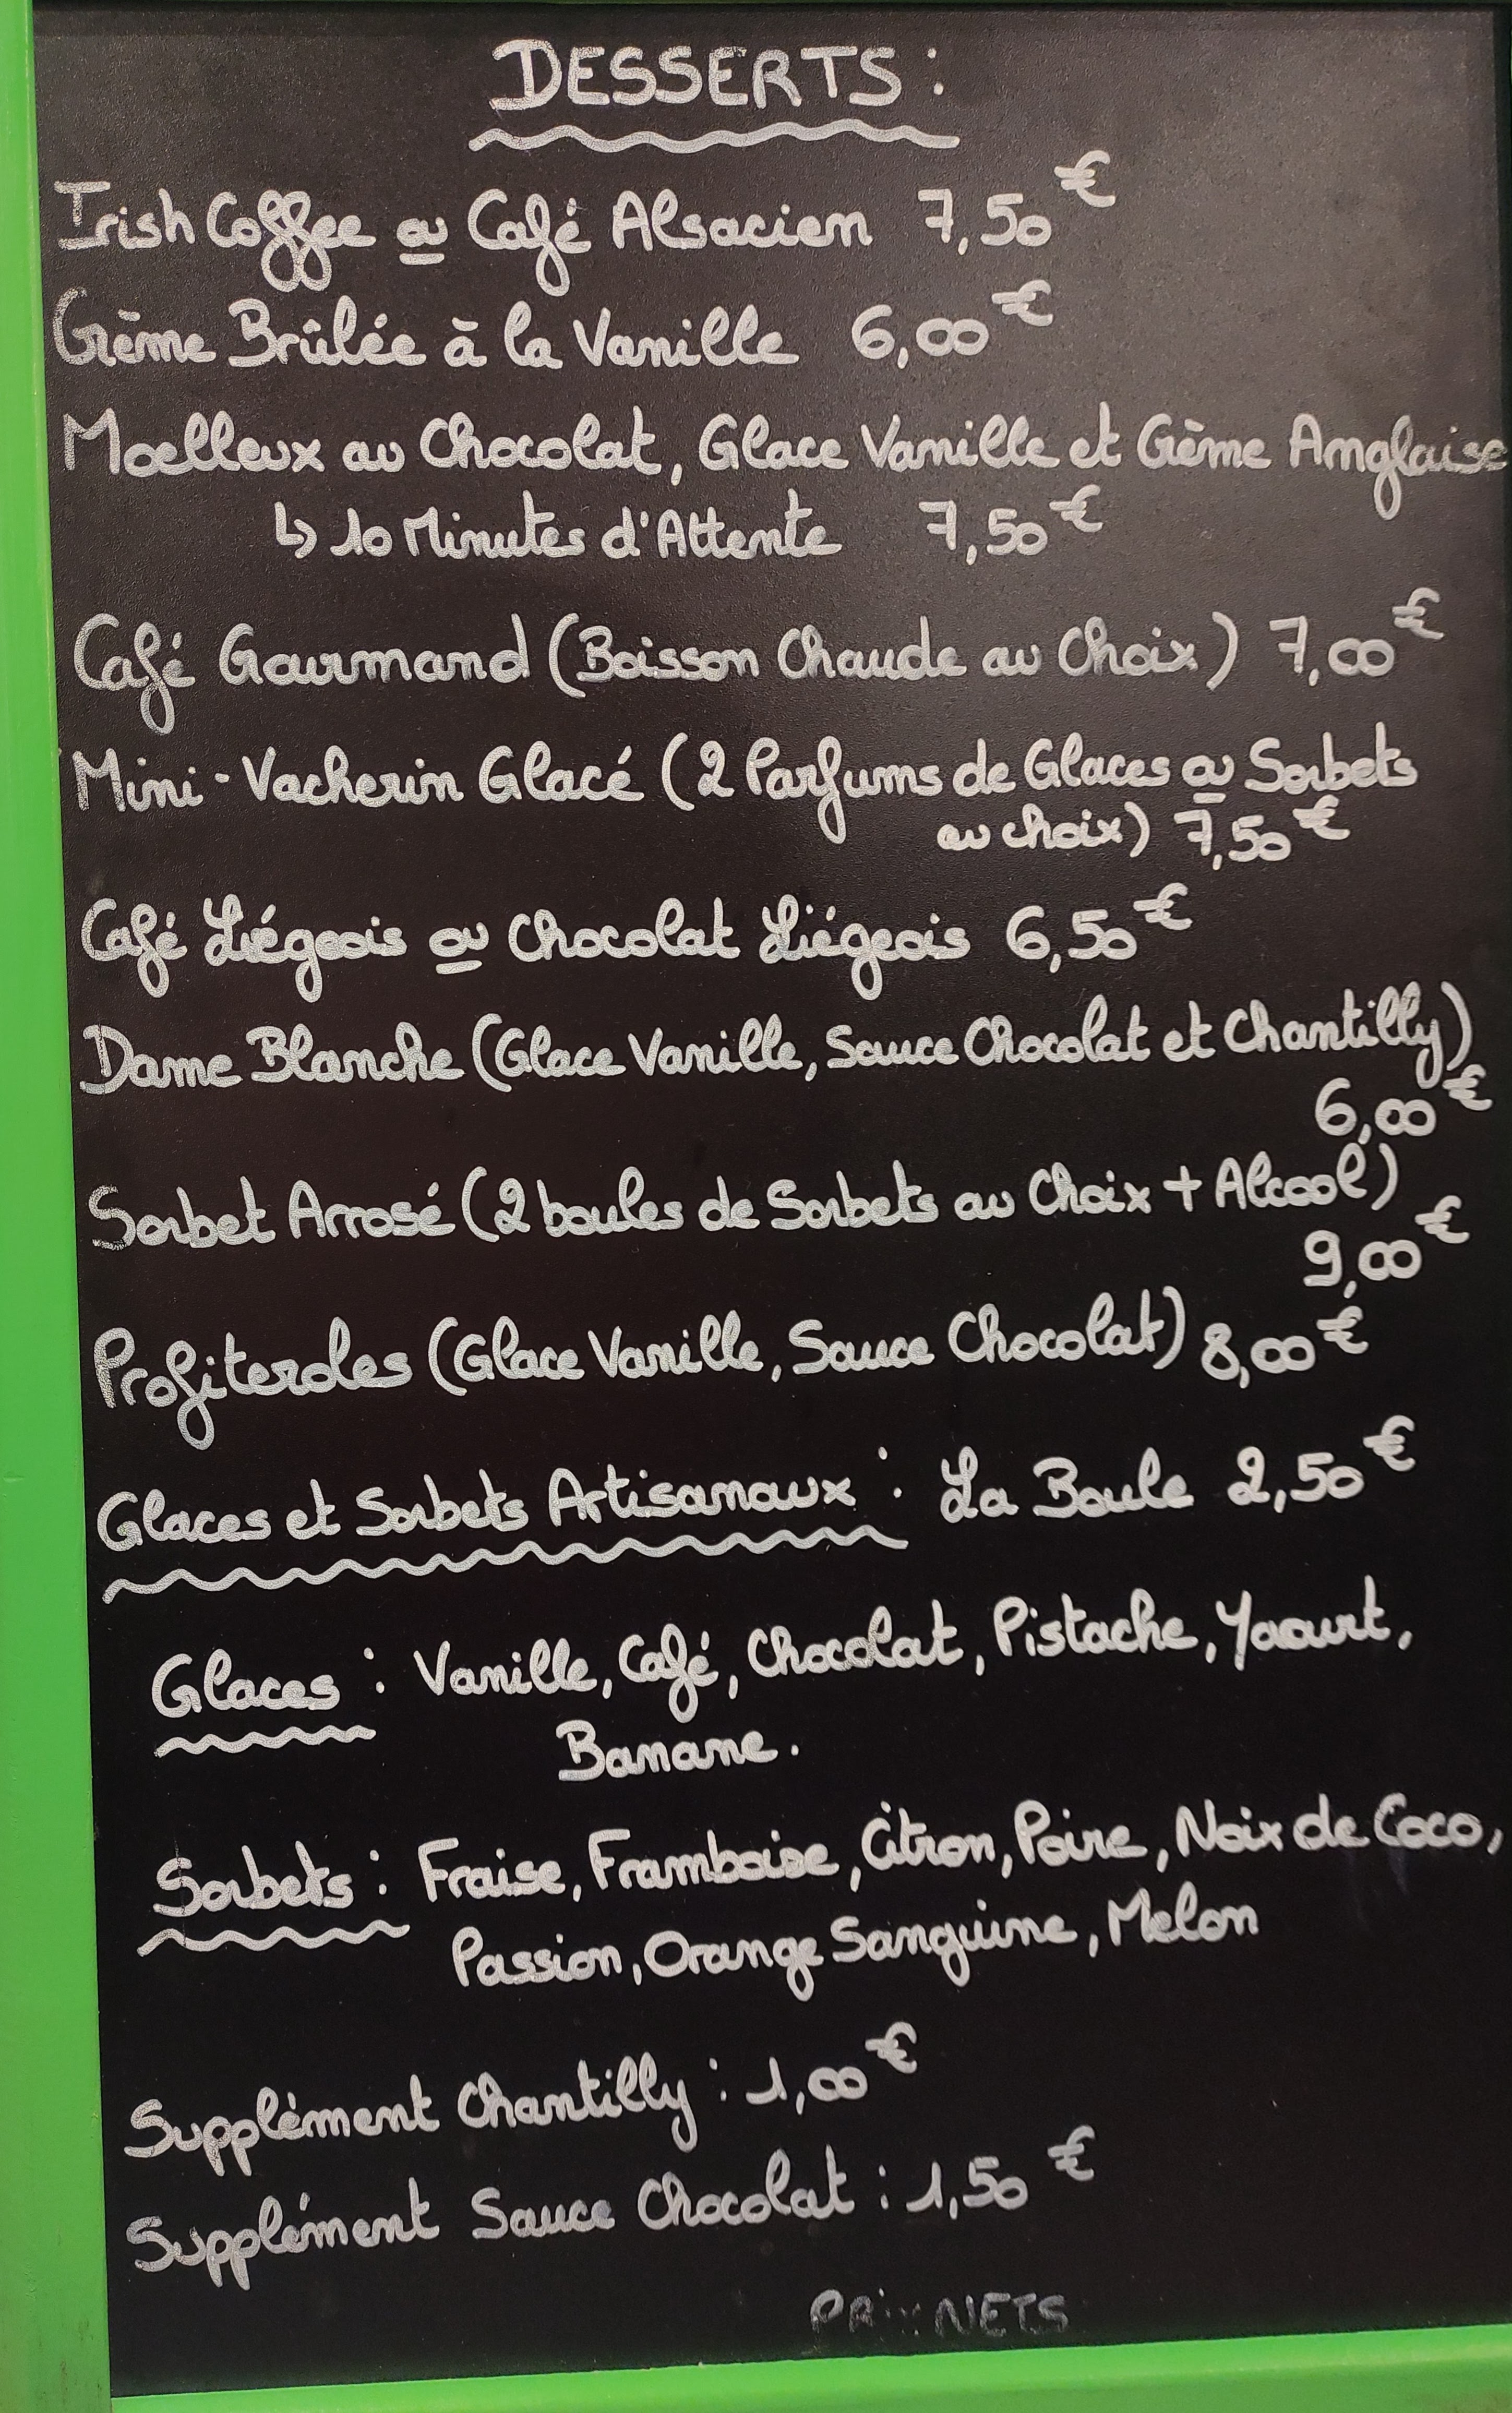 DESSERTS :
Irish Coffee ou Café Alsacien 7,50€
Crème Brûlée à la Vanille 6,00€
Moelleux au Chocolat, Glace Vanille et Crème Anglaise
↳ 10 Minutes d'Attente 7,50€
Café Gourmand (Boisson Chaude au Choix) 7,00€
Mini-Vacherin Glacé (2 Parfums de Glaces ou Sorbets
au choix) 7,50€
Café Liégeois ou Chocolat Liégeois 6,50€
Dame Blanche (Glace Vanille, Sauce Chocolat et Chantilly)
6,00€
Sorbet Arrosé (2 boules de Sorbets au Choix + Alcool)
9,00€
Profiteroles (Glace Vanille, Sauce Chocolat) 8,00€
Glaces et Sorbets Artisanaux : La Boule 2,50€
Glaces : Vanille, Café, Chocolat, Pistache, Yaourt,
Banane.
Sorbets : Fraise, Framboise, Citron, Poire, Noix de Coco,
Passion, Orange Sanguine, Melon
Supplément Chantilly : 1,00€
Supplément Sauce Chocolat : 1,50 €
PRIX NETS